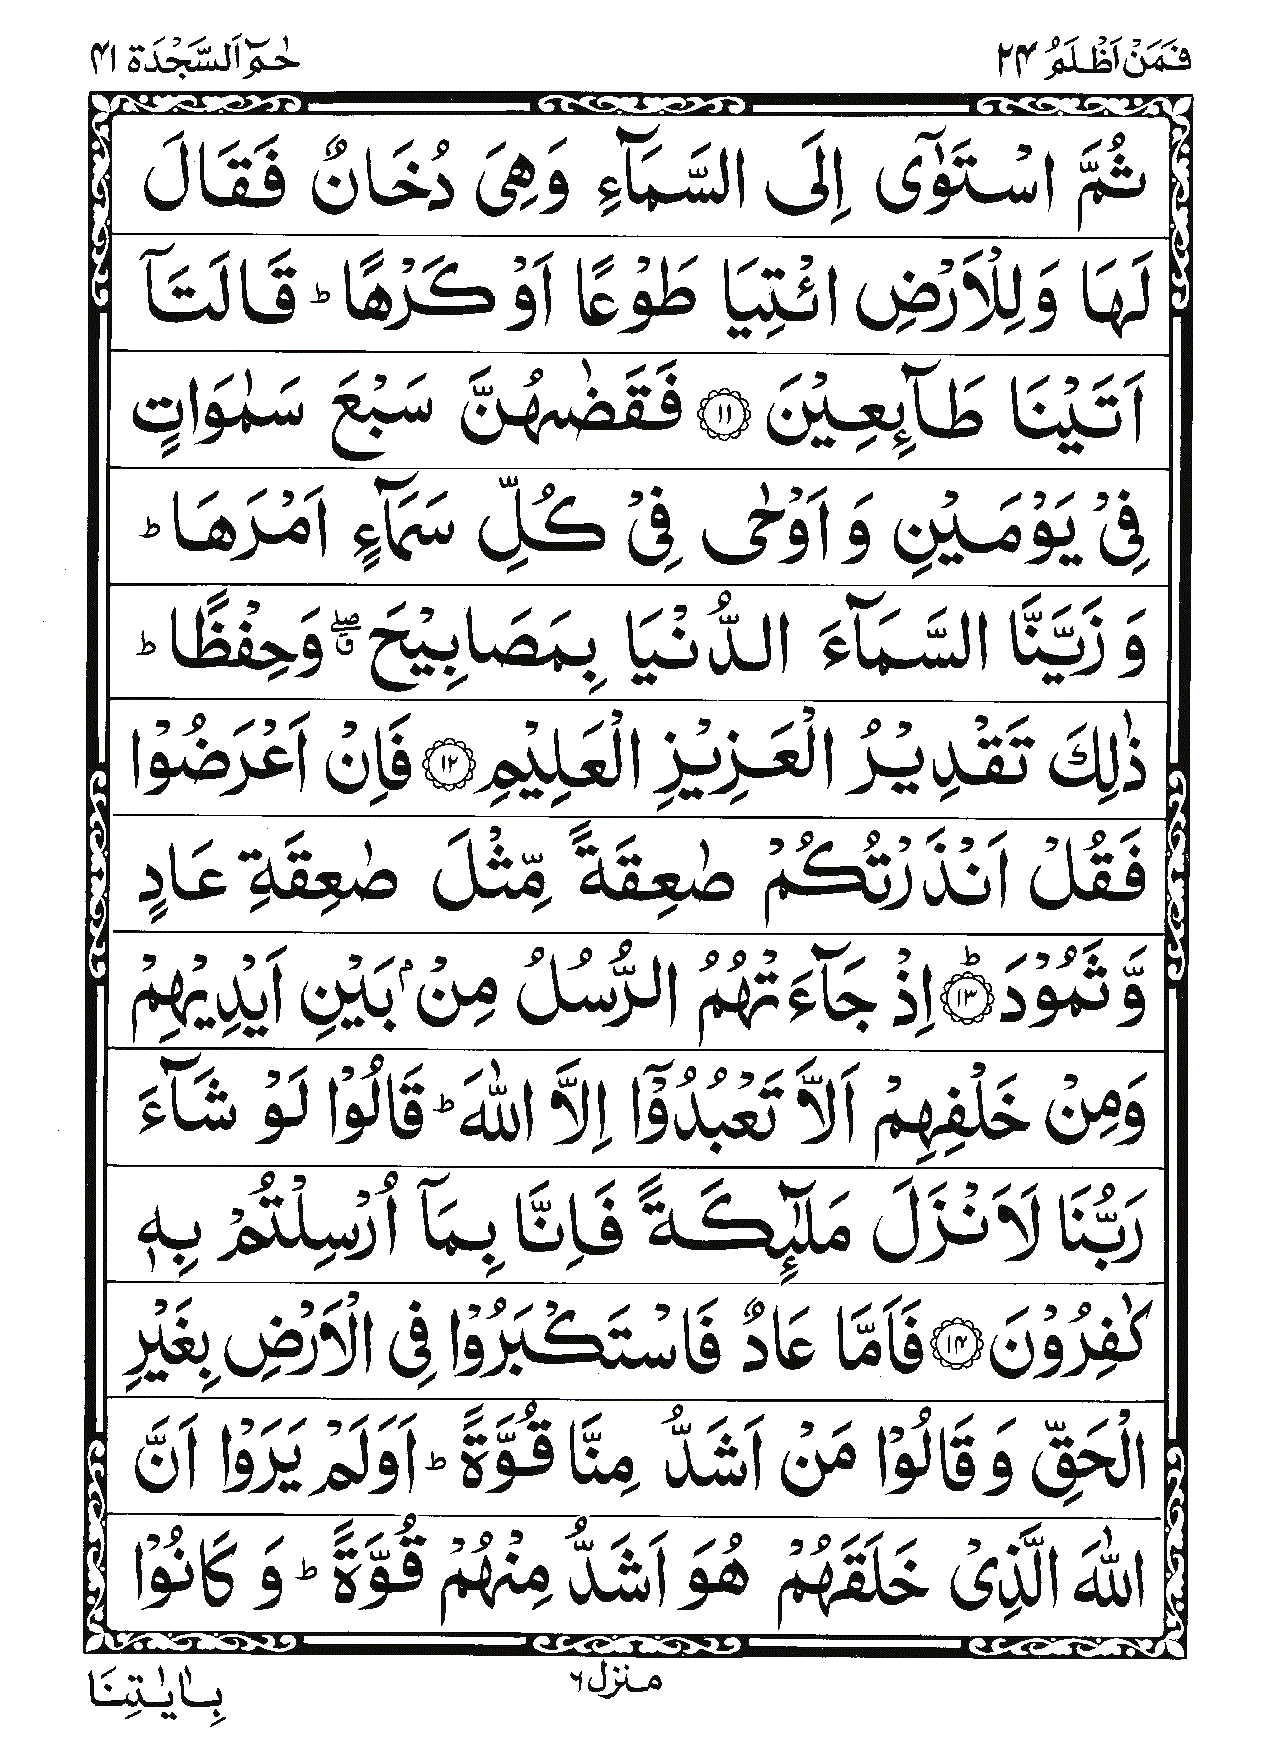 فَمَنْ اَظْلَمُ ۲۴
حٰمٓ اَلسَّجْدَة ۴۱
ثُمَّ اسْتَوٰۤى اِلَى السَّمَآءِ وَهِىَ دُخَانٌ فَقَالَ
لَهَا وَلِلْاَرْضِ ائْتِيَا طَوْعًا اَوْ كَرْهًا ؕ قَالَتَاۤ
اَتَيْنَا طَآٮِٕعِيْنَ ﴿۱۱﴾ فَقَضٰٮهُنَّ سَبْعَ سَمٰوَاتٍ
فِىْ يَوْمَيْنِ وَ اَوْحٰى فِىْ كُلِّ سَمَآءٍ اَمْرَهَا ؕ
وَ زَيَّنَّا السَّمَآءَ الدُّنْيَا بِمَصَابِيْحَ ۖ ق وَحِفْظًا ؕ
ذٰلِكَ تَقْدِيْرُ الْعَزِيْزِ الْعَلِيْمِ ﴿۱۲﴾ فَاِنْ اَعْرَضُوْا
فَقُلْ اَنْذَرْتُكُمْ صٰعِقَةً مِّثْلَ صٰعِقَةِ عَادٍ
وَّثَمُوْدَ ؕ﴿۱۳﴾ اِذْ جَآءَتْهُمُ الرُّسُلُ مِنْۢ بَيْنِ اَيْدِيْهِمْ
وَمِنْ خَلْفِهِمْ اَلَّا تَعْبُدُوْۤا اِلَّا اللّٰهَ ؕ قَالُوْا لَوْ شَآءَ
رَبُّنَا لَاَنْزَلَ مَلٰٓٮِٕكَةً فَاِنَّا بِمَاۤ اُرْسِلْتُمْ بِهٖ
كٰفِرُوْنَ ﴿۱۴﴾ فَاَمَّا عَادٌ فَاسْتَكْبَرُوْا فِى الْاَرْضِ بِغَيْرِ
الْحَقِّ وَ قَالُوْا مَنْ اَشَدُّ مِنَّا قُوَّةً ؕ اَوَلَمْ يَرَوْا اَنَّ
اللّٰهَ الَّذِىْ خَلَقَهُمْ هُوَ اَشَدُّ مِنْهُمْ قُوَّةً ؕ وَ كَانُوْا
منزل ۶
بِاٰيٰتِنَا